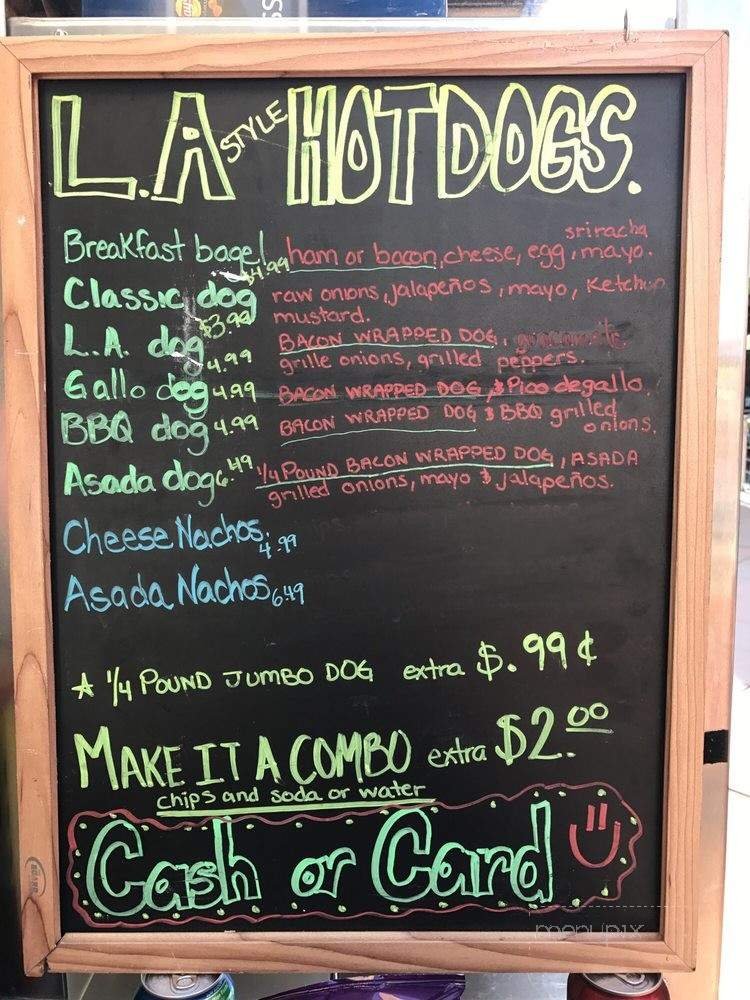 L.A STYLE HOTDOGS.
Breakfast bagel $4.99 ham or bacon, cheese, egg, sriracha mayo.
Classic dog $3.99 raw onions, jalapeños, mayo, Ketchup
mustard.
L.A. dog 4.99 BACON WRAPPED DOG,
grille onions, grilled peppers.
Gallo dog 4.99 BACON WRAPPED DOG, & Pico degallo.
BBQ dog 4.99 BACON WRAPPED DOG & BBQ grilled
onions.
Asada dog 6.49 1/4 POUND BACON WRAPPED DOG, ASADA
grilled onions, mayo & jalapeños.
Cheese Nachos. 4.99
Asada Nachos 6.49
☆ 1/4 POUND JUMBO DOG extra $.99¢
MAKE IT A COMBO extra $2.00
chips and soda or water
Cash or Card
menupix